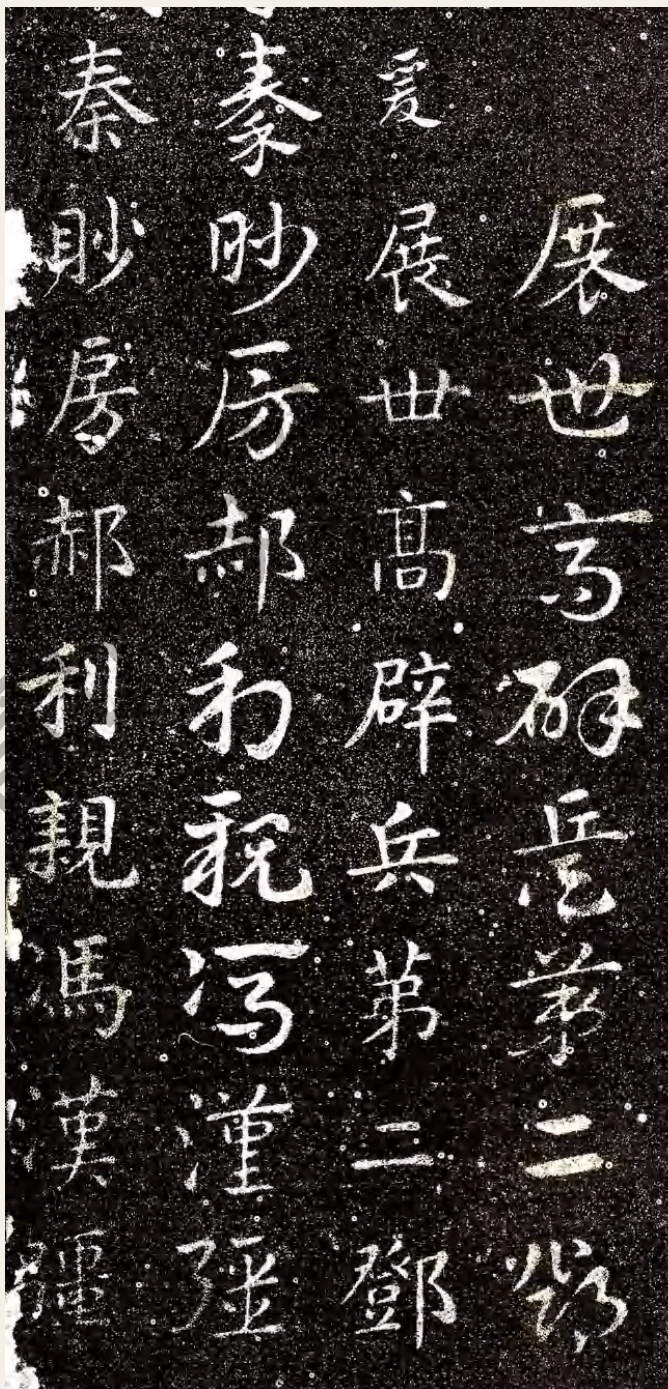 展世高辟兵第二鄧
爰展世高辟兵第二鄧
秦眇房郝利親馮漢彊
秦眇房郝利親馮漢彊